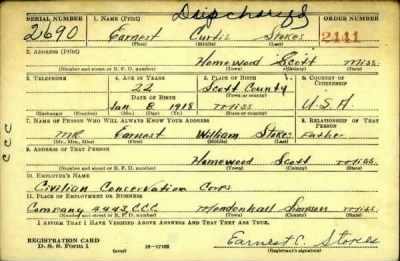 Discharged
SERIAL NUMBER 1. NAME (Print) ORDER NUMBER
2690 Earnest Curtis Stokes 2441
(First) (Middle) (Last)
2. ADDRESS (Print)
Homewood Scott Miss.
(Number and street or R. F. D. number) (Town) (County) (State)
3. TELEPHONE 4. AGE IN YEARS 5. PLACE OF BIRTH 6. COUNTRY OF CITIZENSHIP
22 Scott County
DATE OF BIRTH (Town or county)
Jan 8, 1918 Miss U.S.A.
(Exchange) (Number) (Mo.) (Day) (Yr.) (State or country)
7. NAME OF PERSON WHO WILL ALWAYS KNOW YOUR ADDRESS 8. RELATIONSHIP OF THAT PERSON
MR Earnest William Stokes Father
(Mr., Mrs., Miss) (First) (Middle) (Last)
9. ADDRESS OF THAT PERSON
Homewood Scott Miss.
(Number and street or R. F. D. number) (Town) (County) (State)
10. EMPLOYER'S NAME
Civilian Conservation Corps
11. PLACE OF EMPLOYMENT OR BUSINESS
Company 4443, CCC Mendenhall Simpson Miss.
(Number and street or R. F. D. number) (Town) (County) (State)
I AFFIRM THAT I HAVE VERIFIED ABOVE ANSWERS AND THAT THEY ARE TRUE.
REGISTRATION CARD
D. S. S. Form 1 (over) 16-17105 Earnest C. Stokes
(Registrant's signature)
CCC